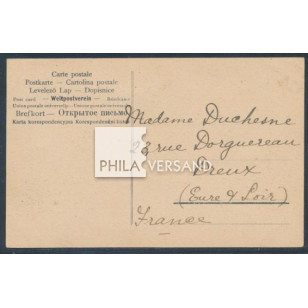 Carte postale
Postkarte — Cartolina postale
Levelező Lap — Dopisnice
Post card — Weltpostverein — Briefkaart
Brefkort — Открытое письмо
Karta korespondencyjna
Madame Duchesne
23 rue Dorguereau
Dreux
(Eure & Loir)
France
PHILA VERSAND